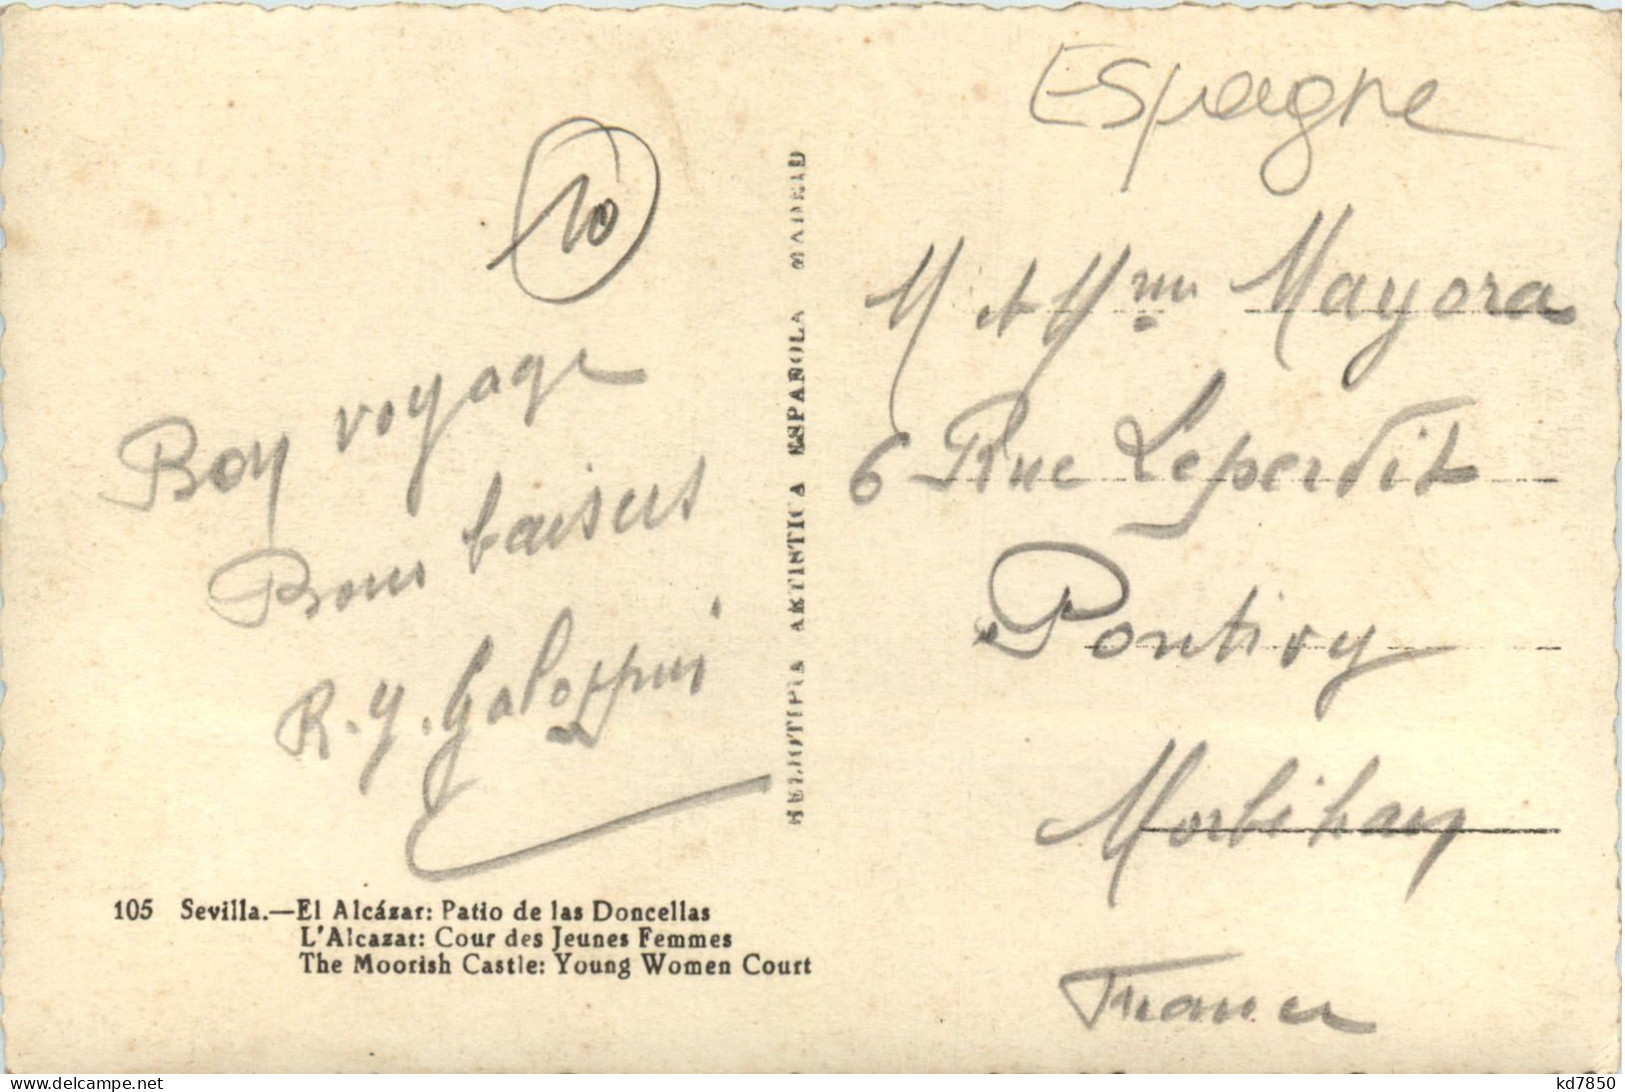 Espagne
10
Bon voyage
Bons baisers
R. Y. Galoppin
M et Mme Mayora
6 Rue Leperdit
Pontivy
Morbihan
France
HELIOTIPIA ARTISTICA ESPAÑOLA MADRID
105 Sevilla.—El Alcázar: Patio de las Doncellas
L'Alcazar: Cour des Jeunes Femmes
The Moorish Castle: Young Women Court
kd7850